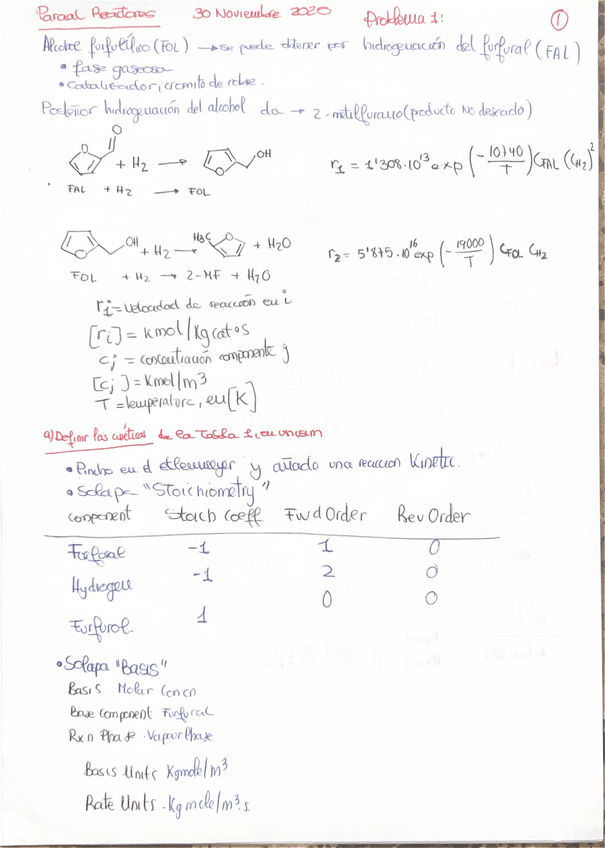 Parcial Reactores 30 Noviembre 2020 Problema 1: ①
Alcohol furfurílico (FOL) → se puede obtener por hidrogenación del furfural (FAL)
• fase gaseosa
• Catalizador, cromito de cobre.
Posterior hidrogenación del alcohol da → 2-metilfurano (producto No deseado)
O
O + H2 → O OH r1 = 1'308·10^13 exp (-10740/T) CFAL (CH2)^2
FAL + H2 → FOL
O OH + H2 → H3C O + H2O r2 = 5'875·10^16 exp (-19000/T) CFOL CH2
FOL + H2 → 2-MF + H2O
ri = velocidad de reacción en i
[ri] = kmol/kgcat·s
cj = concentración componente j
[cj] = kmol/m3
T = temperatura, en [K]
a) Definir las cinéticas de la Tabla 1, en unisim
• Pincho en el etlenmeyer y añado una reaccion Kinetic.
• Solapa "Stoichiometry"
component Stoich Coeff Fwd Order Rev Order
Furfural -1 1 0
Hydrogen -1 2 0
Furfurol. 1 0 0
• Solapa "Basis"
Basis Molar Concn
Base Component Furfural
Rxn Phase . Vapour Phase.
Basis Units Kgmole/m3
Rate Units . Kgmole/m3.s.